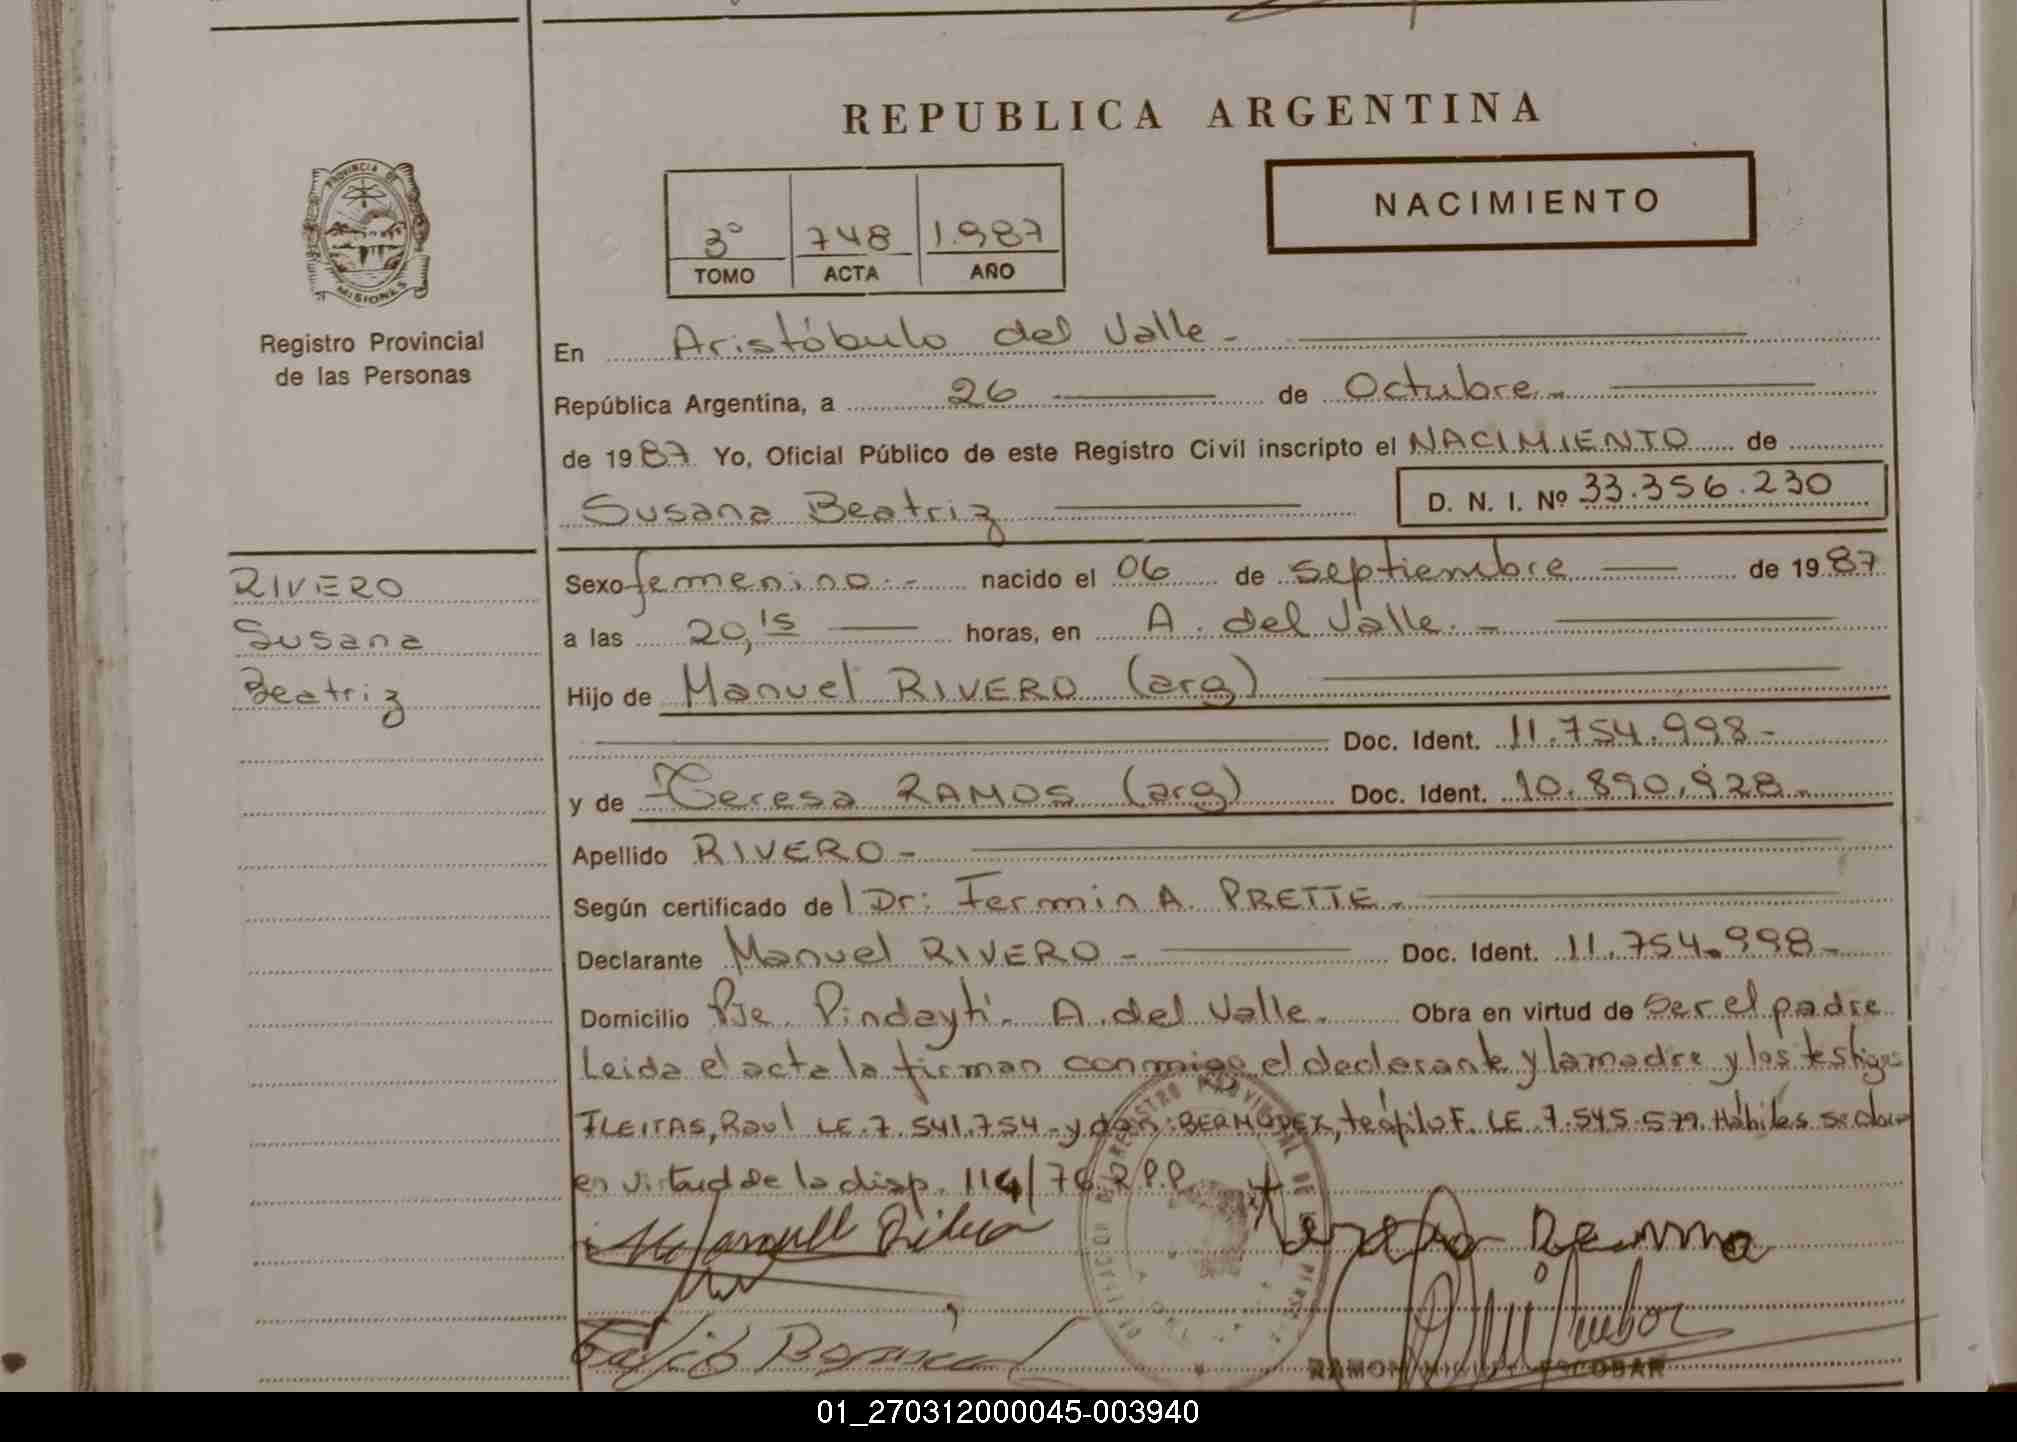 REPUBLICA ARGENTINA
PROVINCIA DE
MISIONES
Registro Provincial
de las Personas
NACIMIENTO
3° 748 1.987
TOMO ACTA AÑO
En Aristóbulo del Valle.-
República Argentina, a 26 de Octubre.-
de 1987 Yo, Oficial Público de este Registro Civil inscripto el NACIMIENTO de
Susana Beatriz D. N. I. Nº 33.356.230
RIVERO
Susana
Beatriz
Sexo femenino.- nacido el 06 de septiembre de 1987
a las 20,15 horas, en A. del Valle.-
Hijo de Manuel RIVERO (arg)
Doc. Ident. 11.754.998-
y de Teresa RAMOS (arg) Doc. Ident. 10.890.928.-
Apellido RIVERO-
Según certificado del Dr: Fermin A. PRETTE.
Declarante Manuel RIVERO- Doc. Ident. 11.754.998-
Domicilio Pje. Pindayti. A. del Valle. Obra en virtud de ser el padre
Leida el acta la firman conmigo el declarante y la madre y los testigos
FLEITAS, Raul LE.7.541.754-y don: BERMUDEZ, teófilo F. LE 7.545.579. Hábiles
en virtud de la disp. 114/76 R.P.P.
RAMON ESCOBAR
01_270312000045-003940